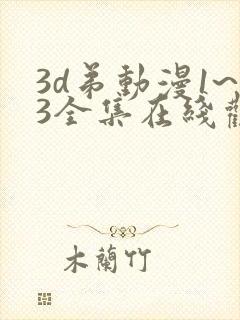 3d弟動漫1~
3全集在綫觀
木蘭竹